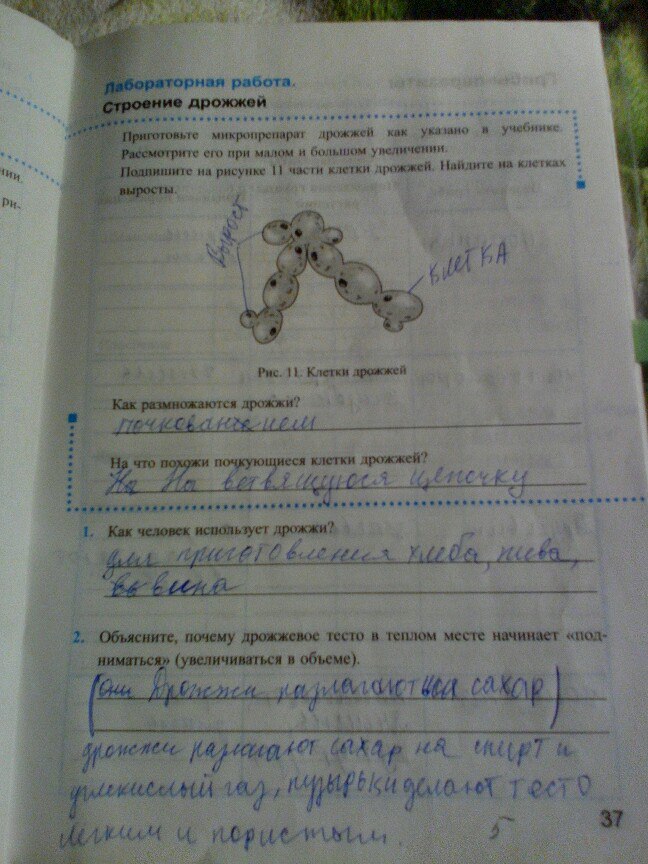 Лабораторная работа.
Строение дрожжей
Приготовьте микропрепарат дрожжей как указано в учебнике.
Рассмотрите его при малом и большом увеличении.
Подпишите на рисунке 11 части клетки дрожжей. Найдите на клетках
выросты.
Вырост
КЛЕТКА
Рис. 11. Клетки дрожжей
Как размножаются дрожжи?
почкованием
На что похожи почкующиеся клетки дрожжей?
На На ветвящуюся цепочку
1. Как человек использует дрожжи?
для приготовления хлеба, пива,
вина
2. Объясните, почему дрожжевое тесто в теплом месте начинает «под-
ниматься» (увеличиваться в объеме).
(они Дрожжи разлагают сахар)
дрожжи разлагают сахар на спирт и
углекислый газ, пузырьки делают тесто
легким и пористым. 5
37